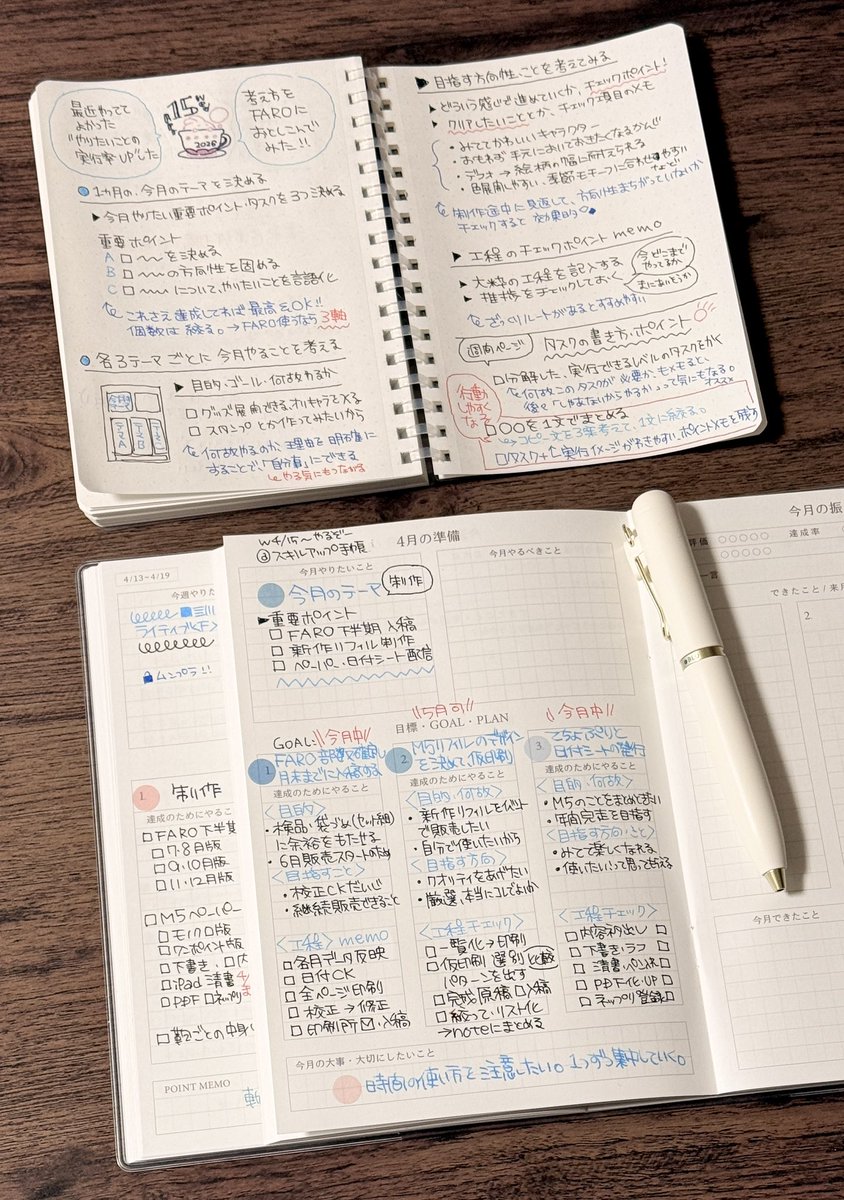 最近やってて
よかった
"やりたいことの
実行率UP"した
15
2026
考え方を
FAROに
おとしこんで
みた!!
1ヵ月の、今月のテーマを決める
▶今月やりたい重要ポイント・タスクを3つ決める
重要ポイント
A □ 〜〜を決める
B □ 〜〜の方向性を固める
C □ 〜〜について、やりたいことを言語化
これさえ達成してれば最高&OK!!
個数は絞る。→FARO使うなら3軸
各3テーマごとに今月やることを考える
今月の
テーマ
テーマA
テーマB
テーマC
▶目的・ゴール・何故やるか
□グッズ展開できる、オリキャラでみる
□スタンプとか作ってみたいから
何故やるのか、理由を明確に
することで、「自分事」にできる
↳やる気にもつながる
▶目指す方向性、ことを考えてみる
▶どういう感じで進めていくか、チェックポイント!
▶クリアしたいこととか、チェック項目のメモ
・みててかわいいキャラクター
・おもわず手元においておきたくなるかんじ
・デフォ→絵柄の幅に耐えられる
・色展開しやすい、季節モチーフに合わせやすい
などで
制作途中に見返して、方向性まちがっていないか
チェックすると効果的◎
▶工程のチェックポイントmemo
▶大枠の工程を記入する
▶推移をチェックしておく
今どこまで
やってるか
まにあいそうか
ざっくりルートがあるとすすめやすい
週間ページ
タスクの書き方・ポイント
行動
しやすく
なるぞ
□分解した、実行できるレベルのタスクをかく
何故このタスクが必要か、もメモると、
後で「しゃあないからやるか」って気にもなる。
オススメ
□〇〇を1文でまとめる
↳コピー文を3案考えて、1文に絞る。
□タスク+↑実行イメージがわきやすい、ポイントメモを残す
W4/15〜やるぞー
③スキルアップ手帳
4月の準備
今月やりたいこと
今月のテーマ
制作
▶重要ポイント
□ FARO下半期入稿
□ 新作リフィル制作
□ ペーパー・日付シート配信
今月やるべきこと
目標・GOAL・PLAN
GOAL:
今月中
1
FARO部数確定し
月末までに入稿する
達成のためにやること
<目的>
・検品・袋づめ(セット組)
に余裕をもたせる
・6月販売スタートのため
<目指すこと>
・校正CKだいじ
・継続販売できること
<工程>memo
□各月データ反映
□日付CK
□全ページ印刷
□校正→修正
□印刷所✉・入稿
5月可
2
M5リフィルのデザイン
を決めて、仮印刷
達成のためにやること
<目的・何故>
・新作リフィルをイベント
で販売したい
・自分で使いたいから
<目指す方向>
・クオリティをあげたい
・厳選、本当にコレでよいか
<工程チェック>
□一覧化→印刷
□仮印刷 選別 比較
パターンを出す
□完成原稿□入稿
□絞って、リスト化
→noteにまとめる
今月中
3
日付シートの発行
達成のためにやること
<目的・何故>
・M5のことをまとめて
・年間完走を目指す
<目指す方向・こと>
・みてて楽しくなれる
・使いたい!って思ってもらえる
<工程チェック>
□内容ネタ出し □
□下書き・ラフ □
□清書・ペン入れ □
□PDF化・UP □
□ネップリ登録 □
今月の大事・大切にしたいこと
時間の使い方を注意したい。1つずつ集中していく。
4/13~4/19
今週やりた
ライティブ<F>
1.
制作
達成のためにやるこ
□FARO下半期
□7・8月版
□9・10月版
□11・12月版
□M5ペーパー
□モノクロ版
□ワンポイント版
□下書き、□内
□iPad清書
□PDF □ネップリ
□鞄ごとの中身
POINT MEMO
今月の振
評価
達成率
一言
できたこと / 来月
2
今月できたこと